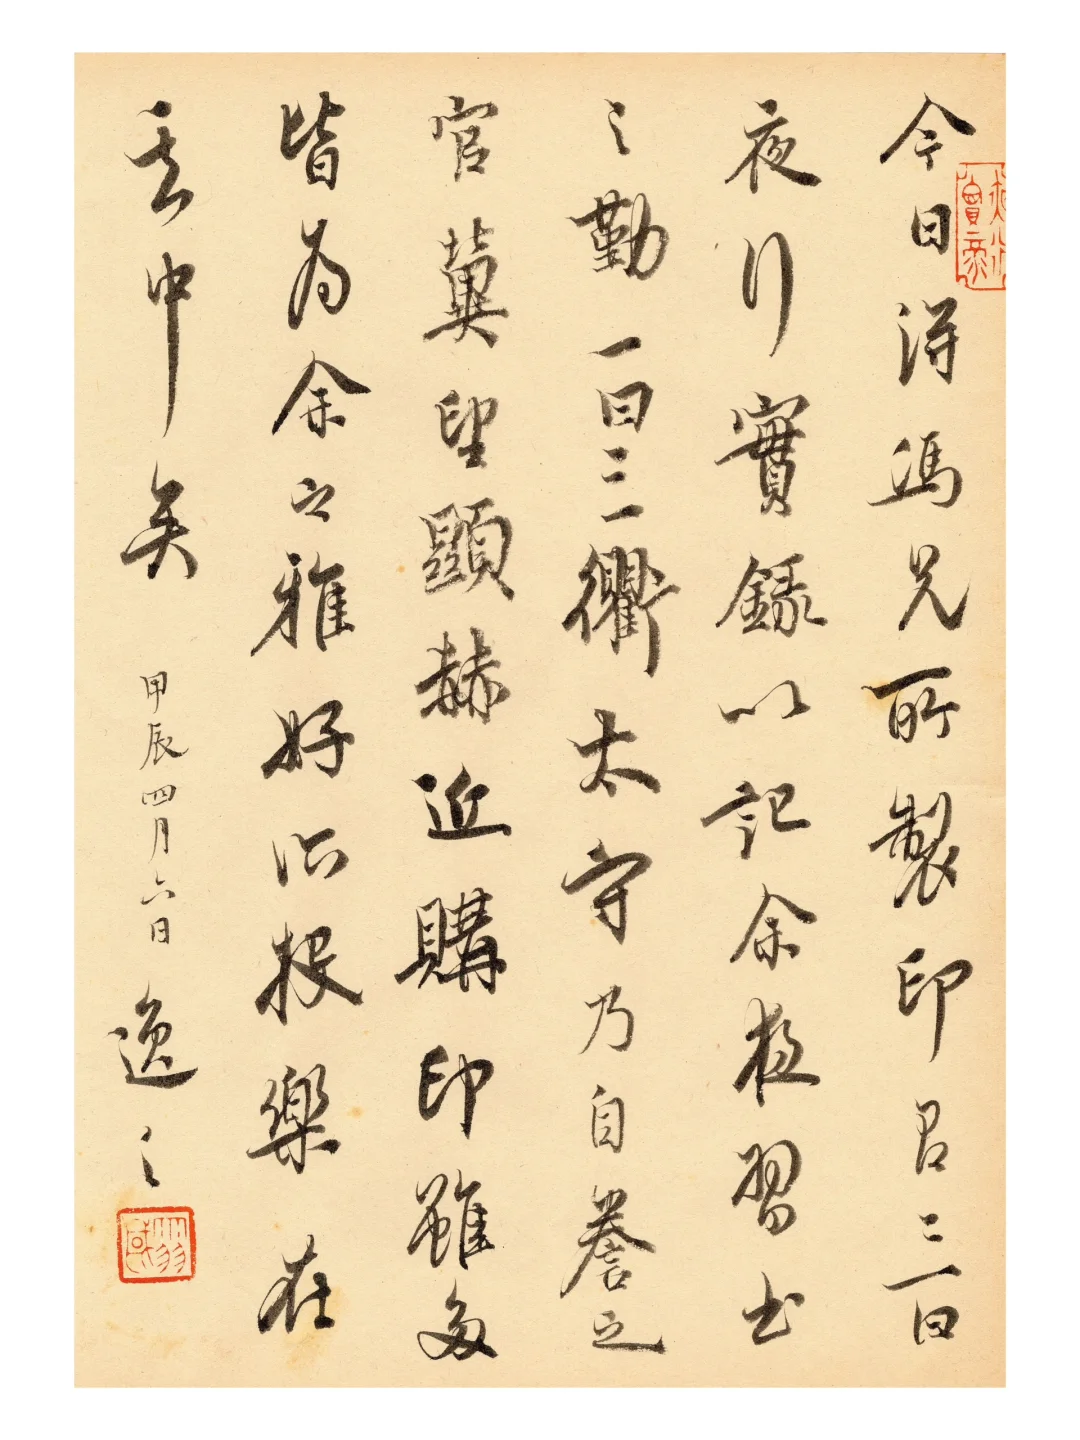 今日得馮兄所製印二一曰
夜行實錄以記余夜習書
之勤一曰三衢太守乃自譽之
官冀望顯赫近購印雖多
皆為余之雅好所投樂在
其中矣 甲辰四月六日 逸之